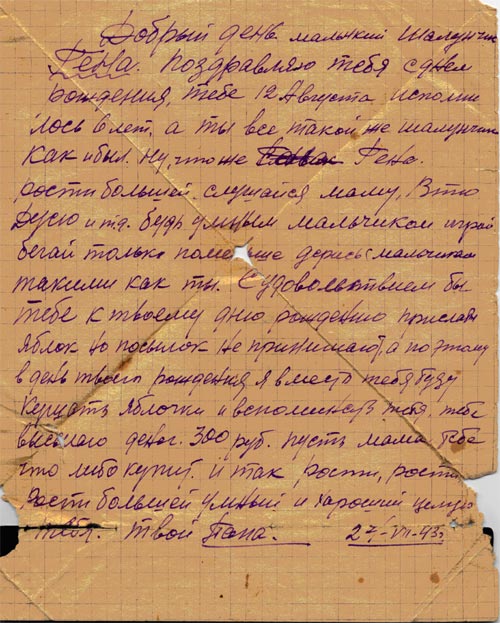 Добрый день маленкий шалунчик
Гена. Поздравляю тебя с днем
рождения, тебе 12 Августа исполни
лось 6 лет, а ты все такой же шалунчик
как и был. Ну, что же Гена.
рости большей. слушайся маму,
Дусю и т.д. будь умным мальчиком играй
бегай только поменьше дерись с мальчиками
такими как ты. С удовольствием бы
тебе к твоему дню рождению прислал
яблок но посылок не принимают, а поэтому
в день твоего рождения я вместо тебя буду
кушать яблочки и вспоминать тебя, тебе
высылаю денег. 300 руб. пусть мама тебе
что либо купит. и так рости, рости
рости большей умный и хароший целую
тебя. твой Папа. 27/-VII-43г